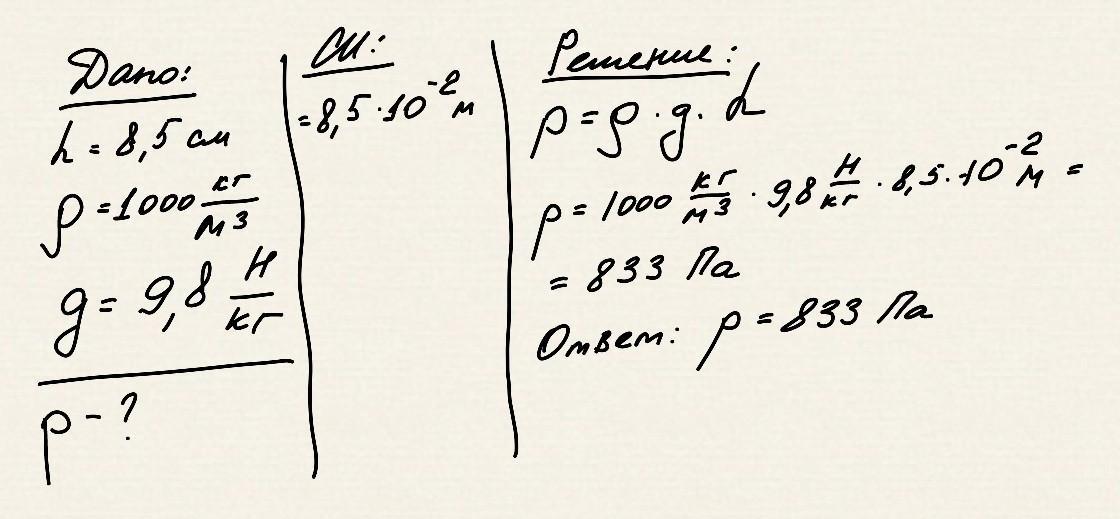 Дано:
h = 8,5 см
ρ = 1000 кг/м³
g = 9,8 Н/кг
p - ?
СИ:
= 8,5 · 10⁻² м
Решение:
p = ρ · g · h
p = 1000 кг/м³ · 9,8 Н/кг · 8,5 · 10⁻² м =
= 833 Па
Ответ: p = 833 Па